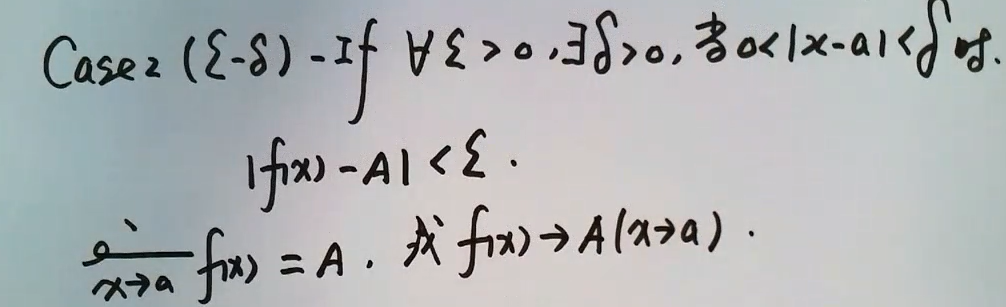 Case 2 (ε-δ) - If ∀ε>0, ∃δ>0, 当0<|x-a|<δ时.
|f(x)-A|<ε.
x→a f(x)=A. 或 f(x)→A(x→a).